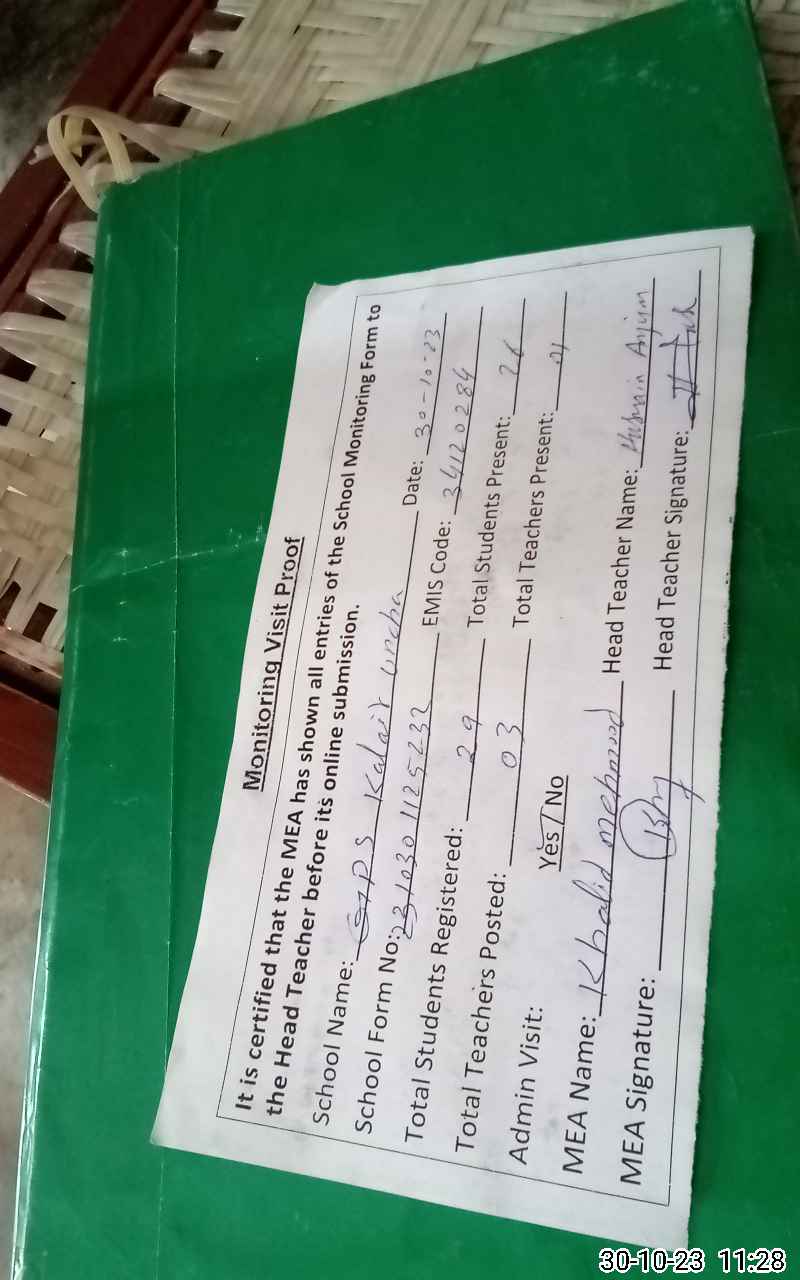 Monitoring Visit Proof
It is certified that the MEA has shown all entries of the School Monitoring Form to
the Head Teacher before its online submission.
School Name: GPS Kalair uncha Date: 30-10-23
School Form No: 2310301125232 EMIS Code: 34120284
Total Students Registered: 29 Total Students Present: 26
Total Teachers Posted: 03 Total Teachers Present:
Admin Visit: Yes / No
MEA Name: Khalid mehmood Head Teacher Name: Husnain Anjum
MEA Signature: Head Teacher Signature:
30-10-23 11:28